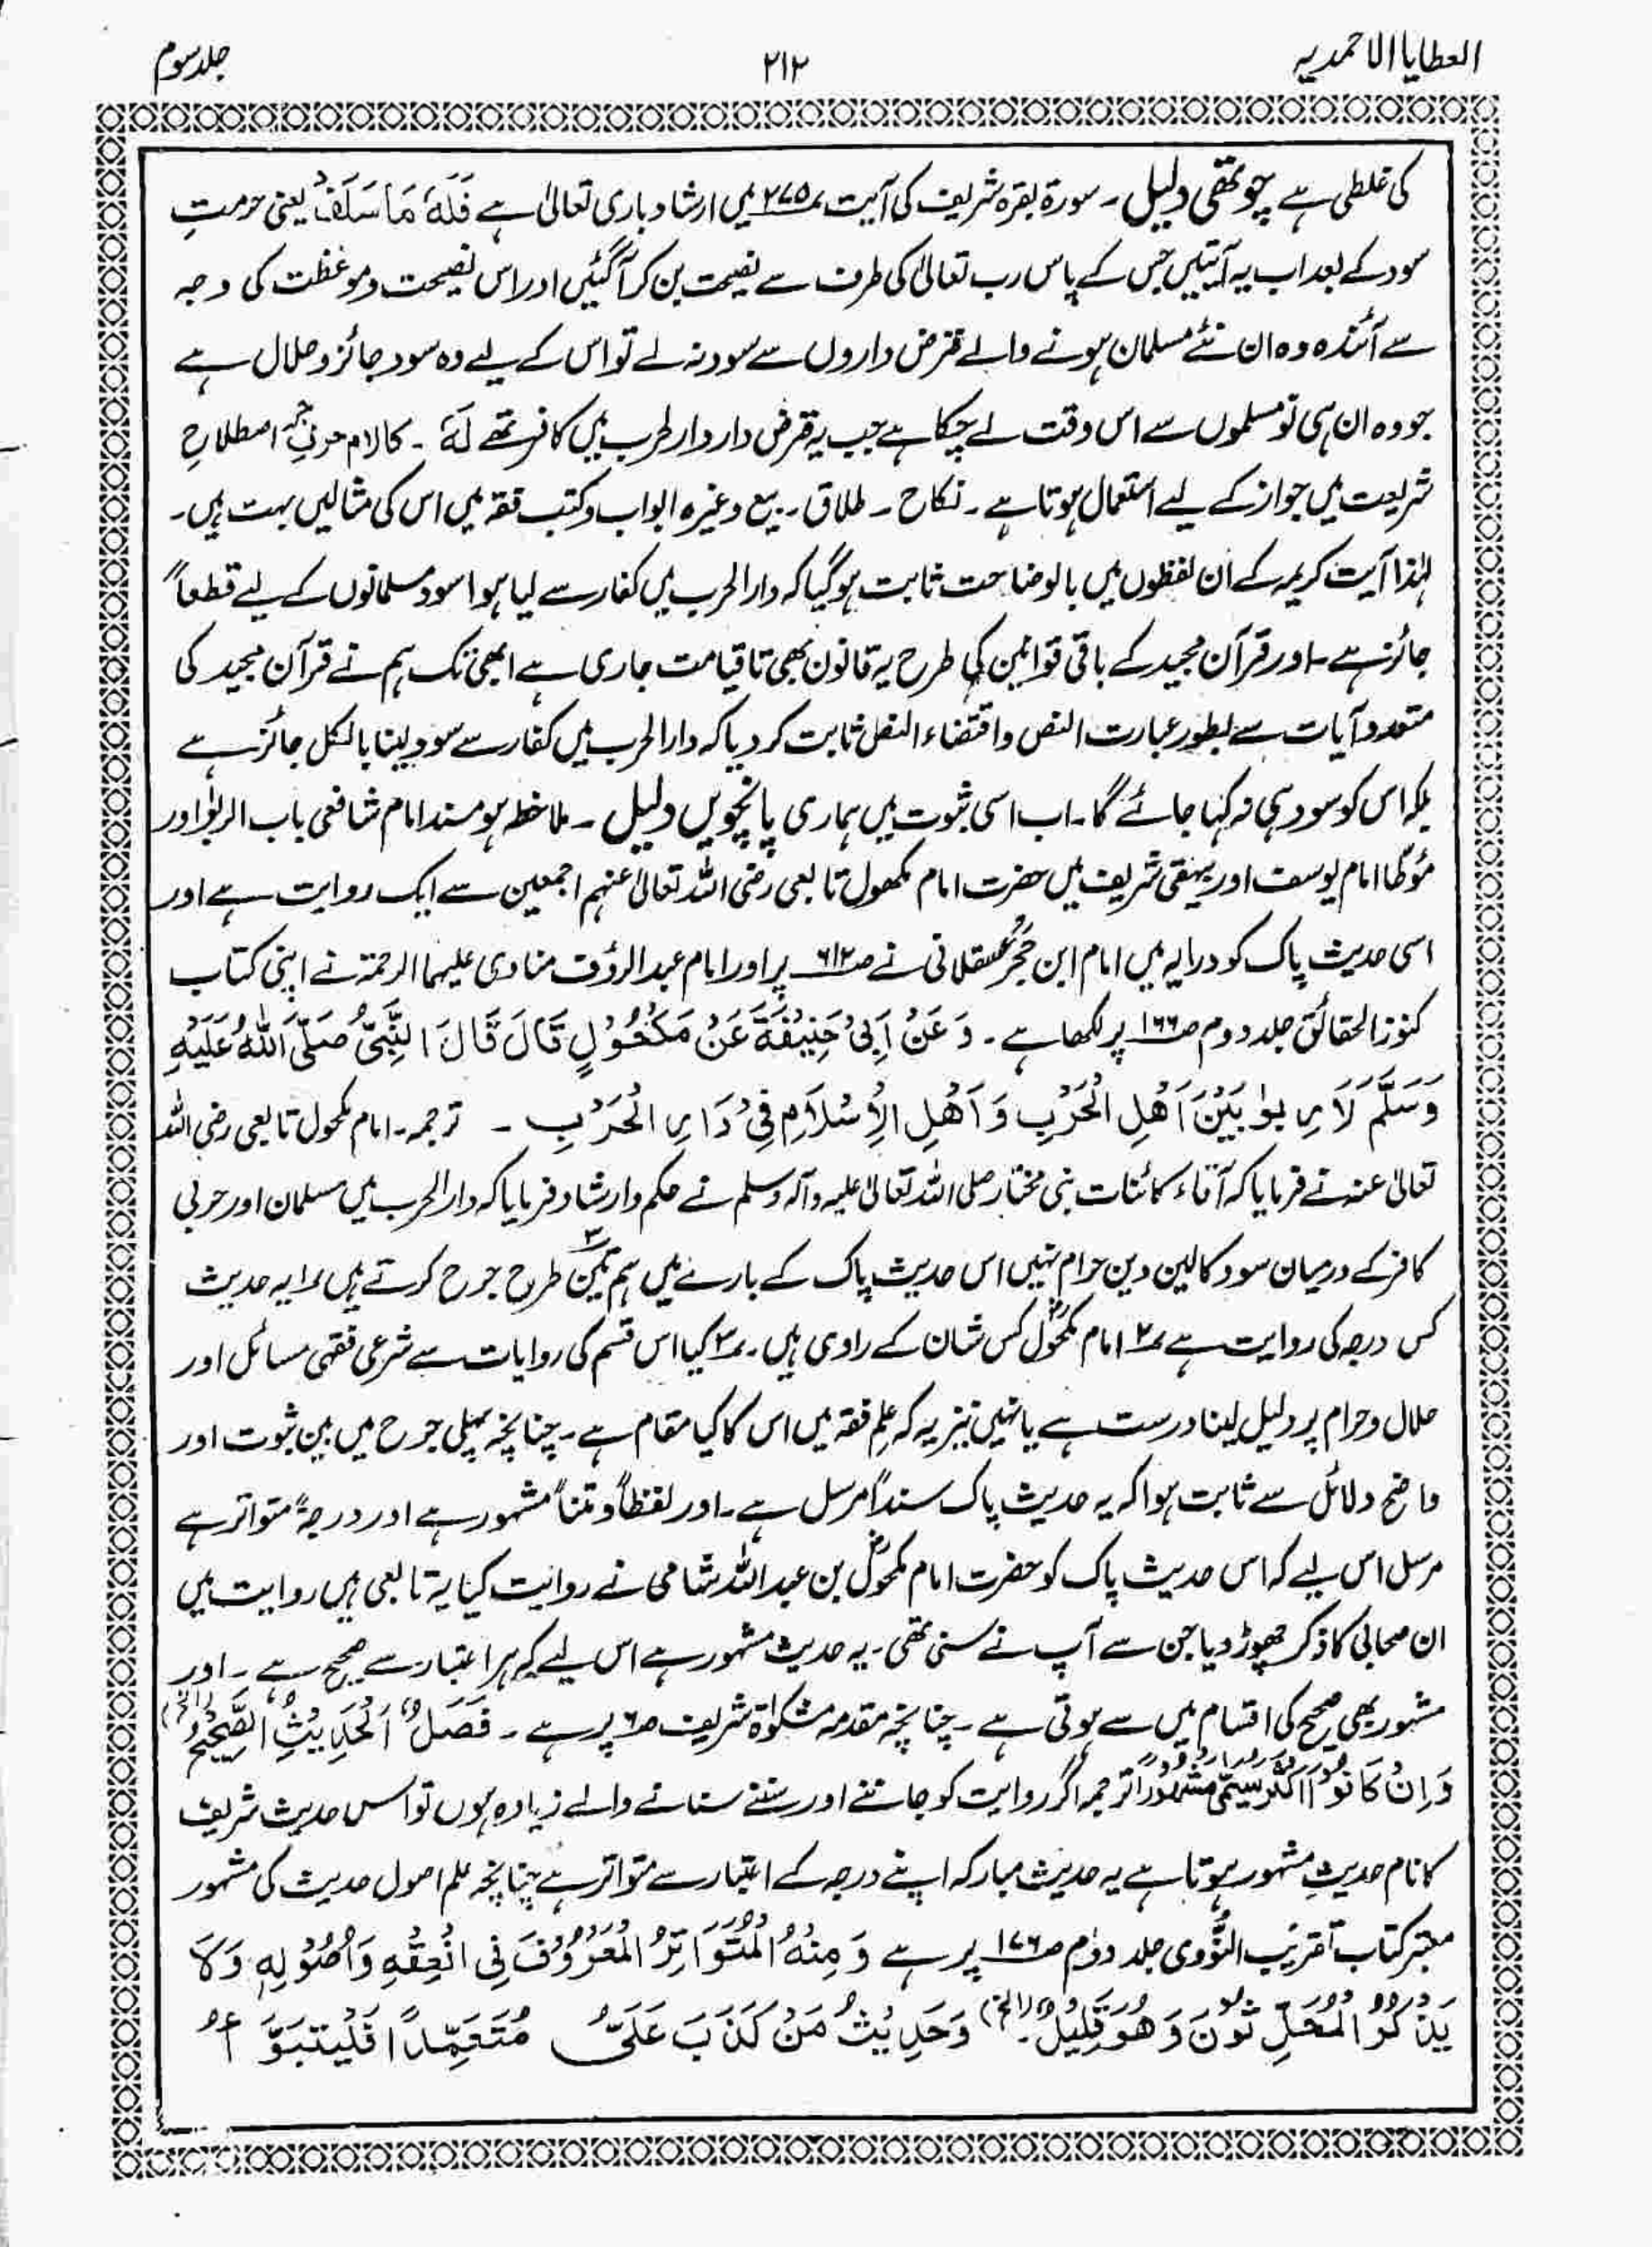 العطایا الاحمدیہ
۲۱۲
جلد سوم
کی غلطی ہے چوتھی دلیل۔ سورۃ بقرہ شریف کی آیت ۲۷۵ میں ارشاد باری تعالیٰ ہے فَلَهٗ مَا سَلَفَ یعنی حرمتِ
سود کے بعد اب یہ آیتیں جس کے پاس رب تعالیٰ کی طرف سے نصیحت بن کر آگئیں اور اس نصیحت و موعظت کی وجہ
سے آئندہ وہ ان نئے مسلمان ہونے والے قرض داروں سے سود نہ لے تو اس کے لیے وہ سود جائز و حلال ہے
جو وہ ان ہی نو مسلموں سے اس وقت لے چکا ہے جب یہ قرض دار دار لحرب میں کافر تھے لَهٗ ۔ کا لام حرفِ جر اصطلاحِ
شریعت میں جواز کے لیے استعمال ہوتا ہے ۔ نکاح ۔ طلاق ۔ بیع وغیرہ ابواب و کتب فقہ میں اس کی مثالیں بہت ہیں۔
لہٰذا آیت کریمہ کے ان لفظوں میں بالوضاحت ثابت ہو گیا کہ دارالحرب میں کفار سے لیا ہوا سود مسلمانوں کے لیے قطعاً
جائز ہے ۔ اور قرآن مجید کے باقی قوانین کی طرح یہ قانون بھی تا قیامت جاری ہے ابھی تک ہم نے قرآن مجید کی
متعدد آیات سے بطور عبارت النص و اقتضاء النص ثابت کر دیا کہ دارالحرب میں کفار سے سود لینا بالکل جائز ہے
بلکہ اس کو سود ہی نہ کہا جائے گا ۔ اب اسی ثبوت میں ہماری پانچویں دلیل ۔ ملاخظہ ہو مسند امام شافعی باب الربوٰا اور
مؤطا امام یوسف اور بیہقی شریف میں حضرت امام مکحول تابعی رضی اللہ تعالیٰ عنہم اجمعین سے ایک روایت ہے اور
اسی حدیث پاک کو درایہ میں امام ابن حجر عسقلانی نے صـ۶۱۲ پر اور امام عبدالرؤف مناوی علیہما الرحمۃ نے اپنی کتاب
کنوز الحقائق جلد دوم صـ۱۶۶ پر لکھا ہے ۔ وَعَنْ اَبِیْ حَنِیْفَةَ عَنْ مَکْحُوْلٍ قَالَ قَالَ النَّبِیُّ صَلَّی اللّٰهُ عَلَیْهِ
وَسَلَّمَ لَا رِبوٰا بَیْنَ اَهْلِ الْحَرْبِ وَ اَهْلِ الْاِسْلَامِ فِیْ دَارِ الْحَرْبِ ۔ ترجمہ ۔ امام مکحول تابعی رضی اللہ
تعالیٰ عنہ نے فرمایا کہ آقاء کائنات نبی مختار صلی اللہ تعالیٰ علیہ وآلہ وسلم نے حکم و ارشاد فرمایا کہ دارالحرب میں مسلمان اور حربی
کافر کے درمیان سود کا لین دین حرام نہیں اس حدیث پاک کے بارے میں ہم تین۳ طرح جرح کرتے ہیں ۱ یہ حدیث
کس درجہ کی روایت ہے ۲ امام مکحول کس شان کے راوی ہیں ۔ ۳ کیا اس قسم کی روایات سے شرعی فقہی مسائل اور
حلال و حرام پر دلیل لینا درست ہے یا نہیں نیز یہ کہ علم فقہ میں اس کا کیا مقام ہے ۔ چنانچہ پہلی جرح میں بین ثبوت اور
واضح دلائل سے ثابت ہوا کہ یہ حدیث پاک سنداً مرسل ہے ۔ اور لفظاً و متناً مشہور ہے اور درجۃً متواتر ہے
مرسل اس لیے کہ اس حدیث پاک کو حضرت امام مکحول بن عبداللہ شامی نے روایت کیا یہ تابعی ہیں روایت میں
ان صحابی کا ذکر چھوڑ دیا جن سے آپ نے سنی تھی ۔ یہ حدیث مشہور ہے اس لیے کہ ہر اعتبار سے صحیح ہے ۔ اور
مشہور بھی صحیح کی اقسام میں سے ہوتی ہے ۔ چنانچہ مقدمہ مشکوٰۃ شریف صـ۶ پر ہے ۔ فَصَلٌ اَلْحَدِیْثُ الصَّحِیْحُ (الخ)
وَاِنْ کَانُوْا اَکْثَرَ سُمِّیَ مَشْهُوْرًا ترجمہ اگر روایت کو جاننے اور سننے سنانے والے زیادہ ہوں تو اس حدیث شریف
کا نام حدیثِ مشہور ہوتا ہے یہ حدیث مبارکہ اپنے درجہ کے اعتبار سے متواتر ہے چنانچہ علم اصول حدیث کی مشہور
معتبر کتاب تقریب النّووی جلد دوم صـ۱۷۶ پر ہے وَ مِنْهُ الْمُتَوَاتِرُ الْمَعْرُوْفُ فِی الْفِقْهِ وَاُصُوْلِهٖ وَلَا
یَذْکُرُ الْمُحَدِّثُوْنَ وَهُوَ قَلِیْلٌ۔ (الخ) وَحَدِیْثُ مَنْ کَذَبَ عَلَیَّ مُتَعَمِّدًا فَلْیَتَبَوَّءْ